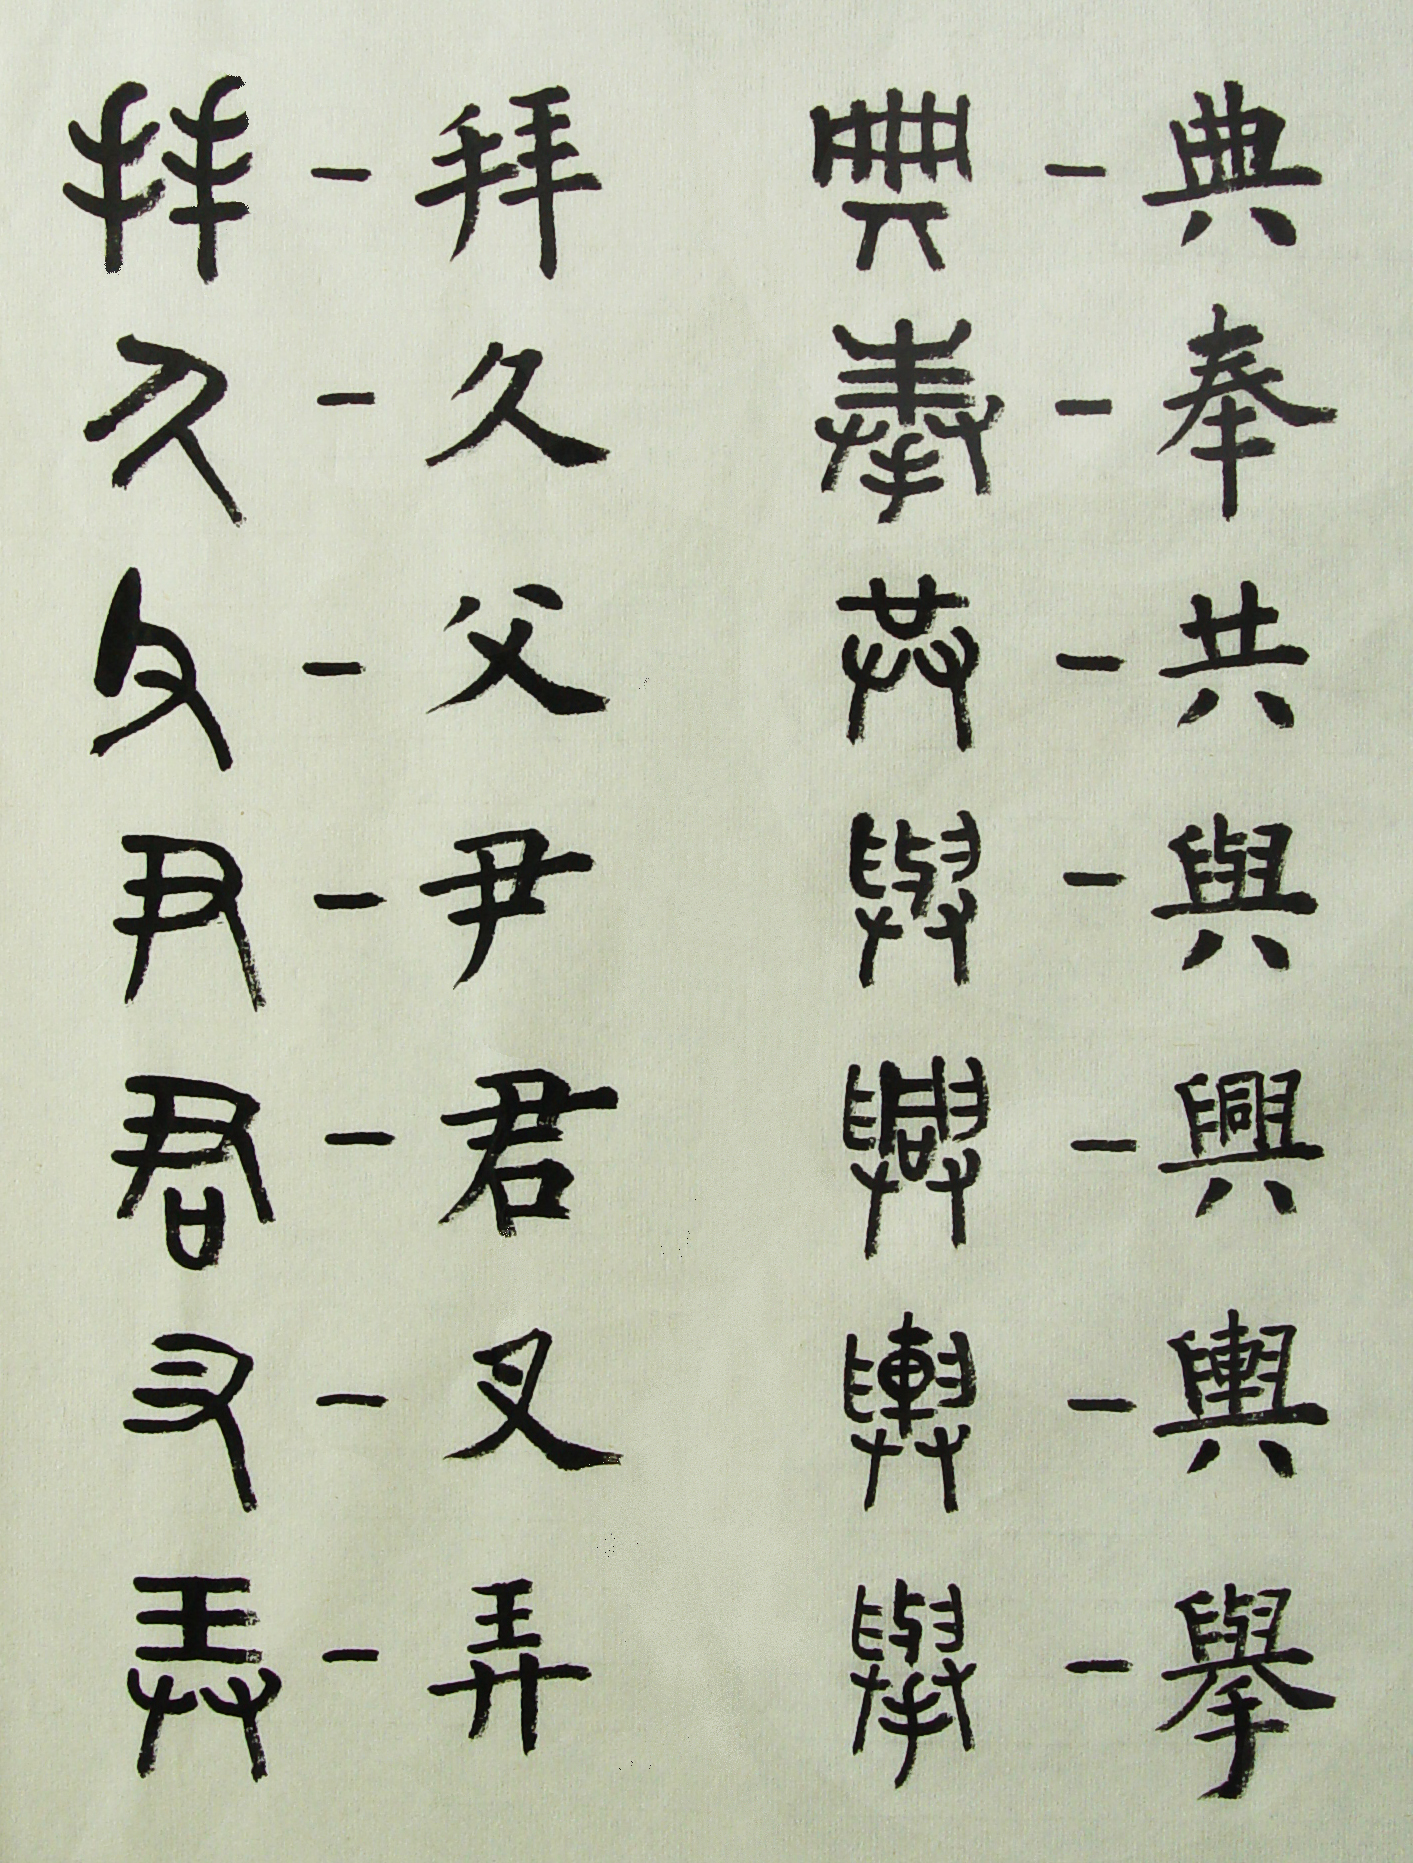 拜－拜　典－典
久－久　奉－奉
父－父　共－共
尹－尹　與－與
君－君　興－興
叉－叉　輿－輿
弄－弄　舉－舉